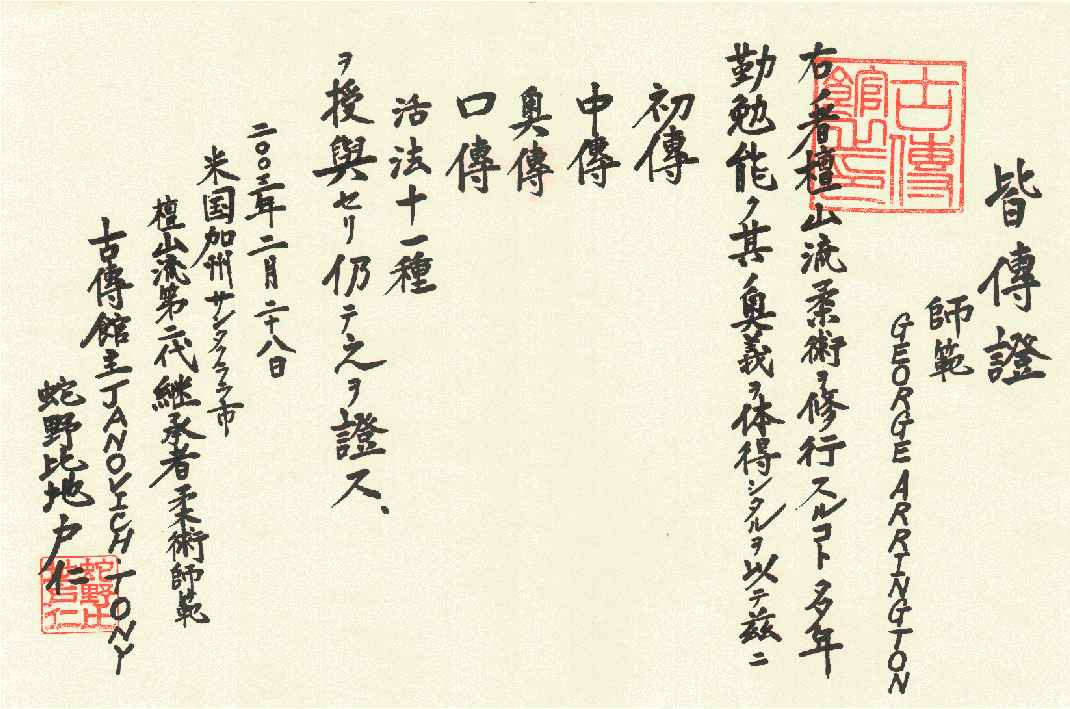 皆傳證
師範
GEORGE ARRINGTON
右ノ者檀山流柔術ヲ修行スルコト多年
勤勉能ク其ノ奥義ヲ体得シタルヲ以テ茲ニ
初傳
中傳
奥傳
口傳
活法十一種
ヲ授與セリ仍テ之ヲ證ス、
二〇〇三年二月二十八日
米国加州サンタクララ市
檀山流第二代継承者柔術師範
古傳館主JANOVICH・TONY
蛇野比地戸仁
古傳館